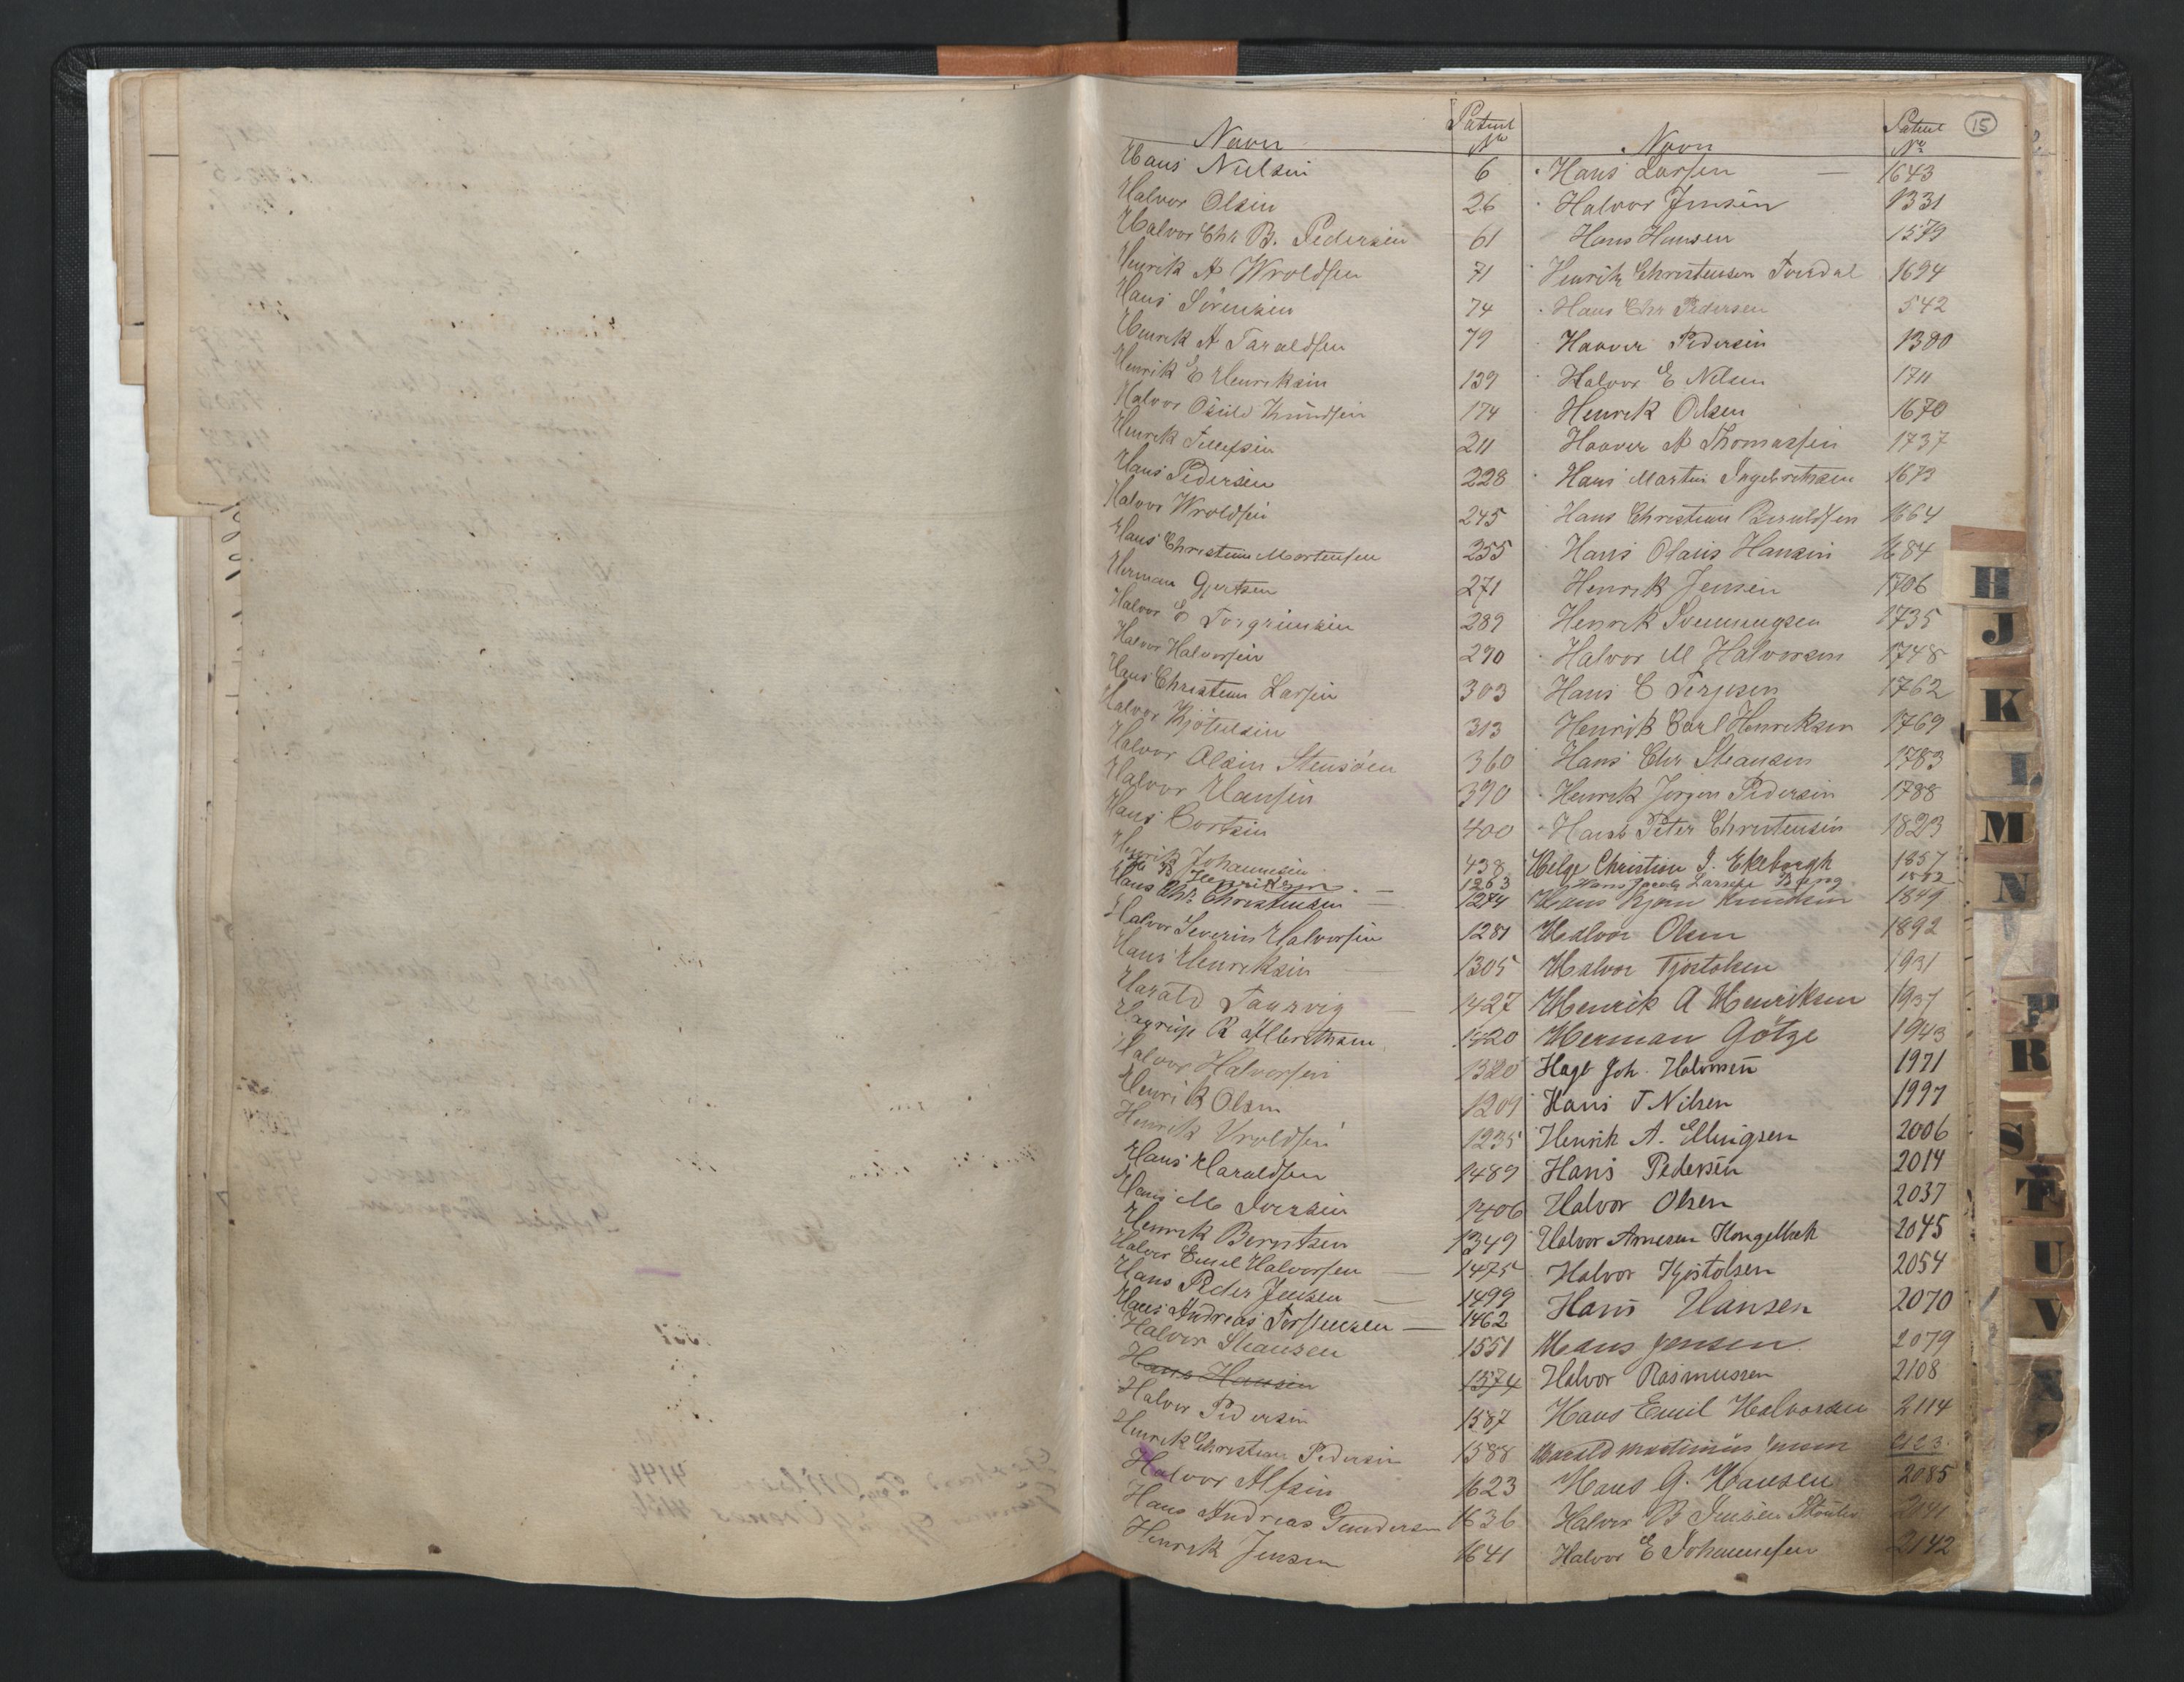 15
Navn Patent Nr
Hans Nielsen 6
Halvor Olsen 26
Halvor Chr B. Pedersen 61
Henrik A Wroldsen 71
Hans Sörensen 74
Henrik A Taraldsen 79
Henrik E Henriksen 139
Halvor Knudsen 174
Henrik Tellefsen 211
Hans Pedersen 228
Halvor Wroldsen 245
Hans Christian Mortensen 255
Herman Gjertsen 271
Halvor E Torgrimsen 289
Halvor Halvorsen 290
Hans Christian Larsen 303
Halvor Kjötulsen 313
Halvor Olsen Stensöen 360
Halvor Hansen 390
Hans Bertsen 400
Henrik Johannesen 438
Henriksen 1263
Hans Chr Christensen 1274
Halvor Severin Halvorsen 1281
Hans Henriksen 1305
Harald Taurvig 1427
R Albretsen 1420
Halvor Halvorsen 1320
Henrik Olsen 1209
Henrik Vroldsen 1235
Hans Haraldsen 1489
Hans M Iversen 1406
Henrik Berntsen 1349
Halvor Emil Halvorsen 1475
Hans Peder Jensen 1499
Hans Andreas Torstensen 1462
Halvor Stiansen 1551
Hans Hansen 1574
Halvor Pedersen 1587
Henrik Christian Pedersen 1588
Halvor Alfsen 1623
Hans Andreas Gundersen 1636
Henrik Jensen 1641
Navn Patent Nr
Hans Larsen 1643
Halvor Jensen 1331
Hans Hansen 1579
Henrik Christensen Tvedal 1694
Hans Chr Pedersen 542
Haaver Pedersen 1380
Halvor E Nilsen 1711
Henrik Olsen 1670
Haaver A Thomassen 1737
Hans Martin Ingebretsen 1673
Hans Christian Beruldsen 1664
Hans Olaus Hansen 1684
Henrik Jensen 1706
Henrik Svenningsen 1735
Halvor M Halvorsen 1748
Hans C Terjesen 1762
Henrik Carl Henriksen 1769
Hans Chr Stiansen 1783
Henrik Jörgen Pedersen 1788
Hans Peter Christensen 1823
Helge Christian J. Ekeborgh 1857
Hans Jacob Larsen Bang
Hans Bjørn Knudsen 1849
Halvor Olsen 1892
Halvor Tjøstolsen 1931
Henrik A Henriksen 1937
Herman Götze 1943
Hage Joh. Halvorsen 1971
Hans T Nilsen 1997
Henrik A. Ellingsen 2006
Hans Pedersen 2014
Halvor Olsen 2037
Halvor Arnesen Kongelbæk 2045
Halvor Kjøstolsen 2054
Hans Hansen 2070
Hans Jensen 2079
Halvor Rasmussen 2108
Hans Emil Halvorsen 2114
Harald Martinius Jensen 2123
Hans G. Hansen 2085
Halvor B Jensen 2141
Halvor E Johannesen 2142
H
J
K
L
M
N
P
R
S
T
U
V